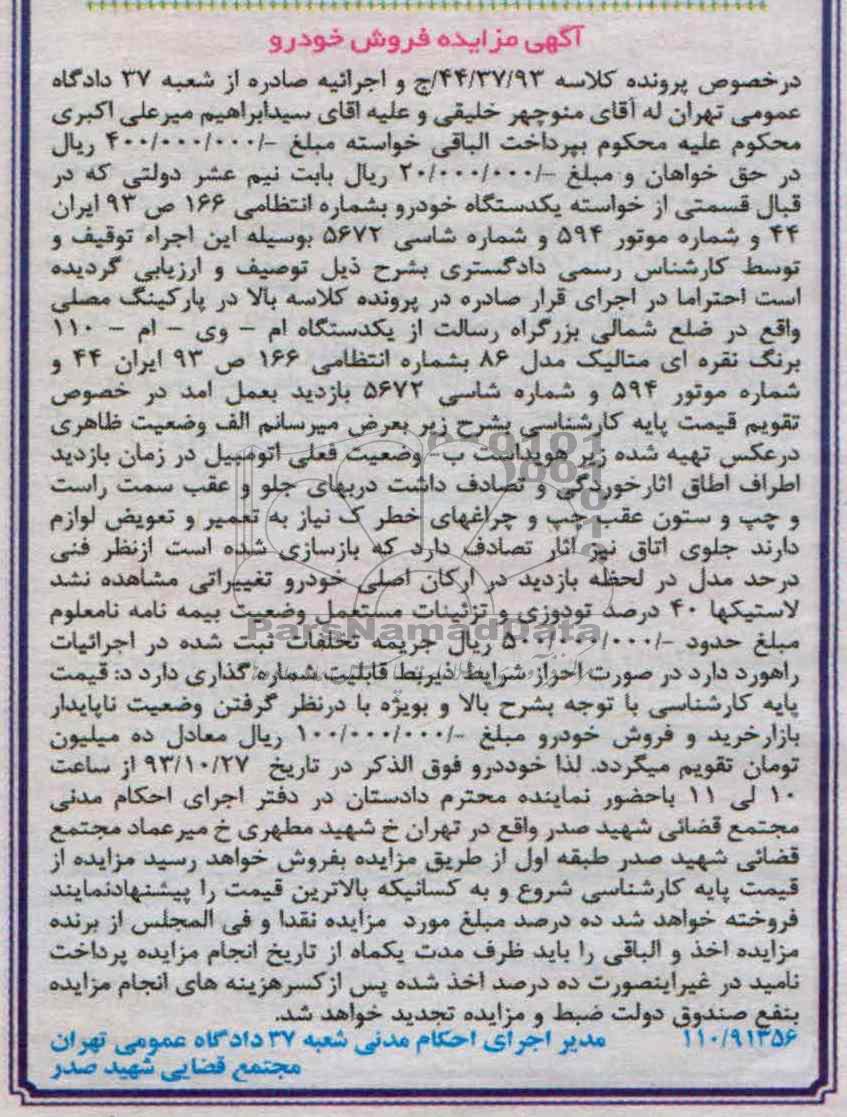 آگهی مزایده فروش خودرو
درخصوص پرونده کلاسه ۴۴/۳۷/۹۳/ج و اجرائیه صادره از شعبه ۳۷ دادگاه
عمومی تهران له آقای منوچهر خلیقی و علیه اقای سیدابراهیم میرعلی اکبری
محکوم علیه محکوم بپرداخت الباقی خواسته مبلغ -/۴۰۰/۰۰۰/۰۰۰ ریال
در حق خواهان و مبلغ -/۲۰/۰۰۰/۰۰۰ ریال بابت نیم عشر دولتی که در
قبال قسمتی از خواسته یکدستگاه خودرو بشماره انتظامی ۱۶۶ ص ۹۳ ایران
۴۴ و شماره موتور ۵۹۴ و شماره شاسی ۵۶۷۲ بوسیله این اجراء توقیف و
توسط کارشناس رسمی دادگستری بشرح ذیل توصیف و ارزیابی گردیده
است احتراما در اجرای قرار صادره در پرونده کلاسه بالا در پارکینگ مصلی
واقع در ضلع شمالی بزرگراه رسالت از یکدستگاه ام - وی - ام - ۱۱۰
برنگ نقره ای متالیک مدل ۸۶ بشماره انتظامی ۱۶۶ ص ۹۳ ایران ۴۴ و
شماره موتور ۵۹۴ و شماره شاسی ۵۶۷۲ بازدید بعمل امد در خصوص
تقویم قیمت پایه کارشناسی بشرح زیر بعرض میرسانم الف وضعیت ظاهری
درعکس تهیه شده زیر هویداست ب- وضعیت فعلی اتومبیل در زمان بازدید
اطراف اطاق اثارخوردگی و تصادف داشت دربهای جلو و عقب سمت راست
و چپ و ستون عقب چپ و چراغهای خطر ک نیاز به تعمیر و تعویض لوازم
دارند جلوی اتاق نیز اثار تصادف دارد که بازسازی شده است ازنظر فنی
درحد مدل در لحظه بازدید در ارکان اصلی خودرو تغییراتی مشاهده نشد
لاستیکها ۴۰ درصد تودوزی و تزئینات مستعمل وضعیت بیمه نامه نامعلوم
مبلغ حدود -/۵۰۰/۰۰۰/۰۰۰ ریال جریمه تخلفات ثبت شده در اجرائیات
راهورد دارد در صورت احراز شرایط ذیربط قابلیت شماره گذاری دارد د: قیمت
پایه کارشناسی با توجه بشرح بالا و بویژه با درنظر گرفتن وضعیت ناپایدار
بازارخرید و فروش خودرو مبلغ -/۱۰۰/۰۰۰/۰۰۰ ریال معادل ده میلیون
تومان تقویم میگردد. لذا خوددرو فوق الذکر در تاریخ ۹۳/۱۰/۲۷ از ساعت
۱۰ لی ۱۱ باحضور نماینده محترم دادستان در دفتر اجرای احکام مدنی
مجتمع قضائی شهید صدر واقع در تهران خ شهید مطهری خ میرعماد مجتمع
قضائی شهید صدر طبقه اول از طریق مزایده بفروش خواهد رسید مزایده از
قیمت پایه کارشناسی شروع و به کسانیکه بالاترین قیمت را پیشنهادنمایند
فروخته خواهد شد ده درصد مبلغ مورد مزایده نقدا و فی المجلس از برنده
مزایده اخذ و الباقی را باید ظرف مدت یکماه از تاریخ انجام مزایده پرداخت
نامید در غیراینصورت ده درصد اخذ شده پس ازکسرهزینه های انجام مزایده
بنفع صندوق دولت ضبط و مزایده تجدید خواهد شد.
۱۱۰/۹۱۳۵۶ مدیر اجرای احکام مدنی شعبه ۳۷ دادگاه عمومی تهران
مجتمع قضایی شهید صدر
ParsNamadData